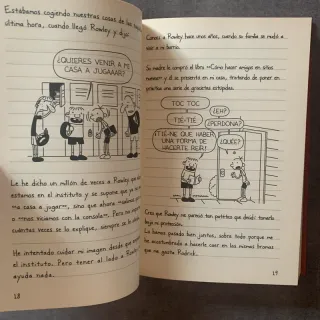 Estábamos cogiendo nuestras cosas de las
última hora, cuando llegó Rowley y dijo:
¿QUIERES VENIR A MI
CASA A JUGAAAR?
Le he dicho un millón de veces a Rowley que
estamos en el instituto y se supone que ya no
«a casa a jugar», sino que ahora
o «nos viciamos con la consola». Pero no importa
cuántas veces se lo explique, siempre se le
He intentado cuidar mi imagen desde que
el instituto. Pero tener al lado a Rowley
ayuda nada.
18
Conocí a Rowley hace unos años, cuando su familia se mudó
a vivir a mi barrio.
Su madre le compró el libro «Cómo hacer amigos en sitios
nuevos» y él se presentó en mi casa, tratando de poner en
práctica una serie de gracietas estúpidas.
TOC TOC
¿EH?
-TIE-TIE
¿PERDONA?
¡TIE-NE QUE HABER
UNA FORMA DE
HACERTE REÍR!
¿QUÉ?
Creo que Rowley me pareció tan patético que decidí tomarlo
bajo mi protección.
Lo hemos pasado bien juntos, sobre todo porque me
he acostumbrado a hacerle caer en las mismas bromas
que me gasta Rodrick.
19